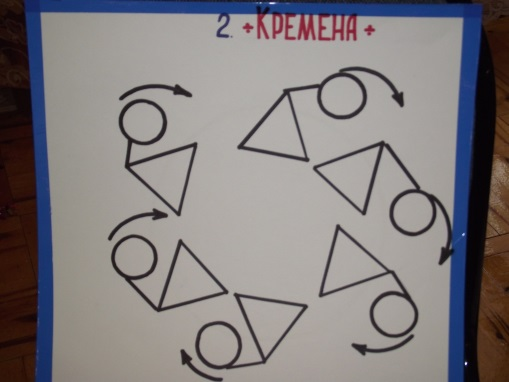 2. +КРЕМЕНА+